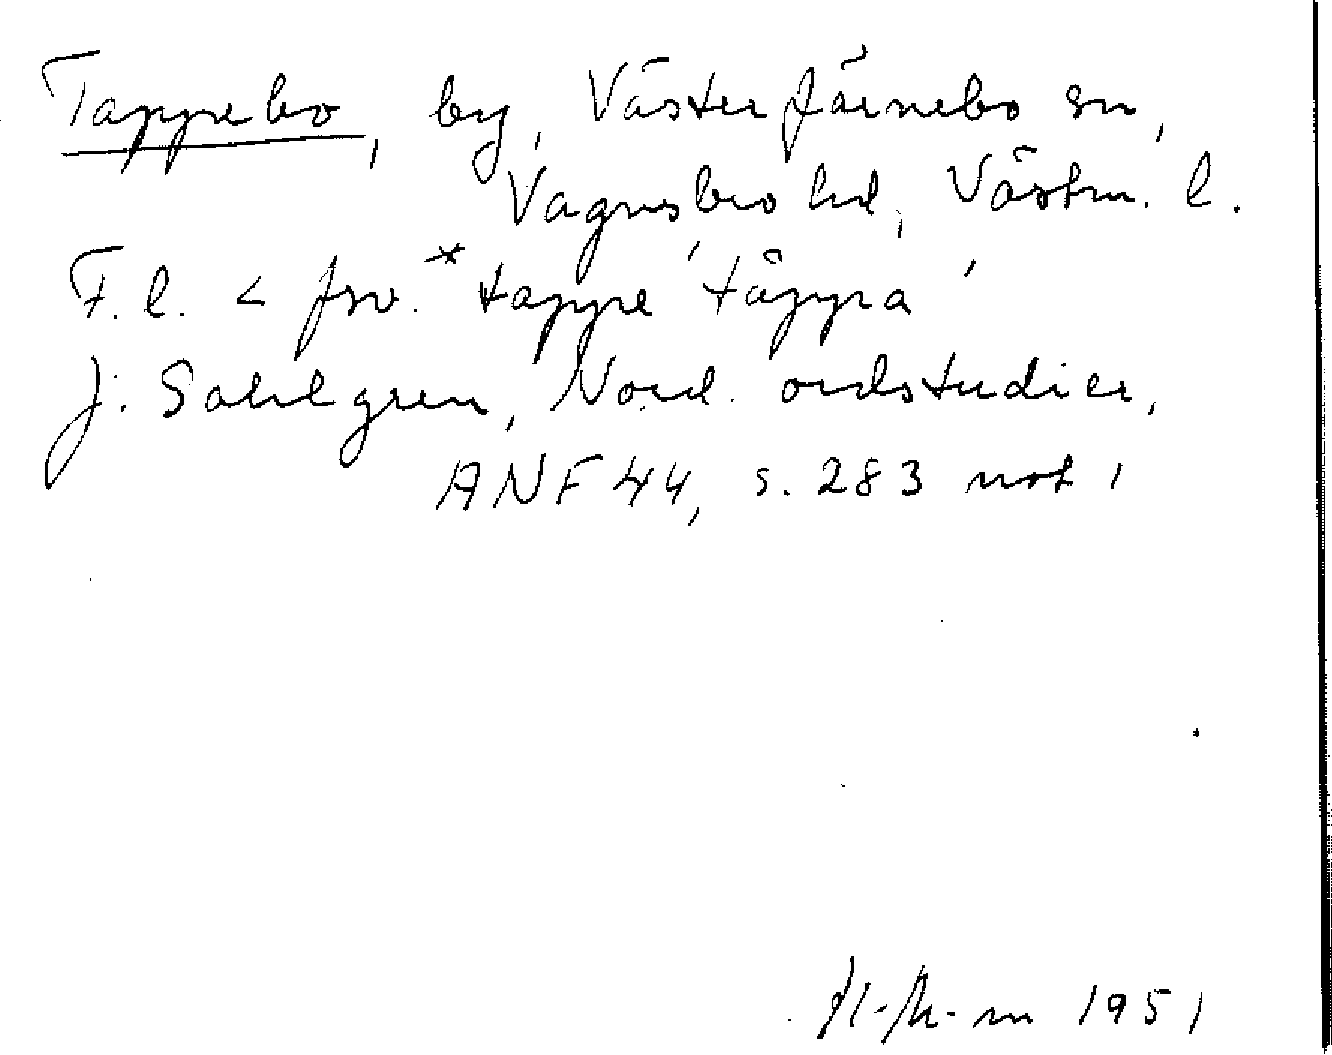 Tappebo, by, Västerfärnebo sn,
Vagnsbro hd, Västm. l.
F.l. < fsv. *tappe 'täppa'
J. Sahlgren, Nord. ordstudier,
ANF 44, s. 283 not 1
1951